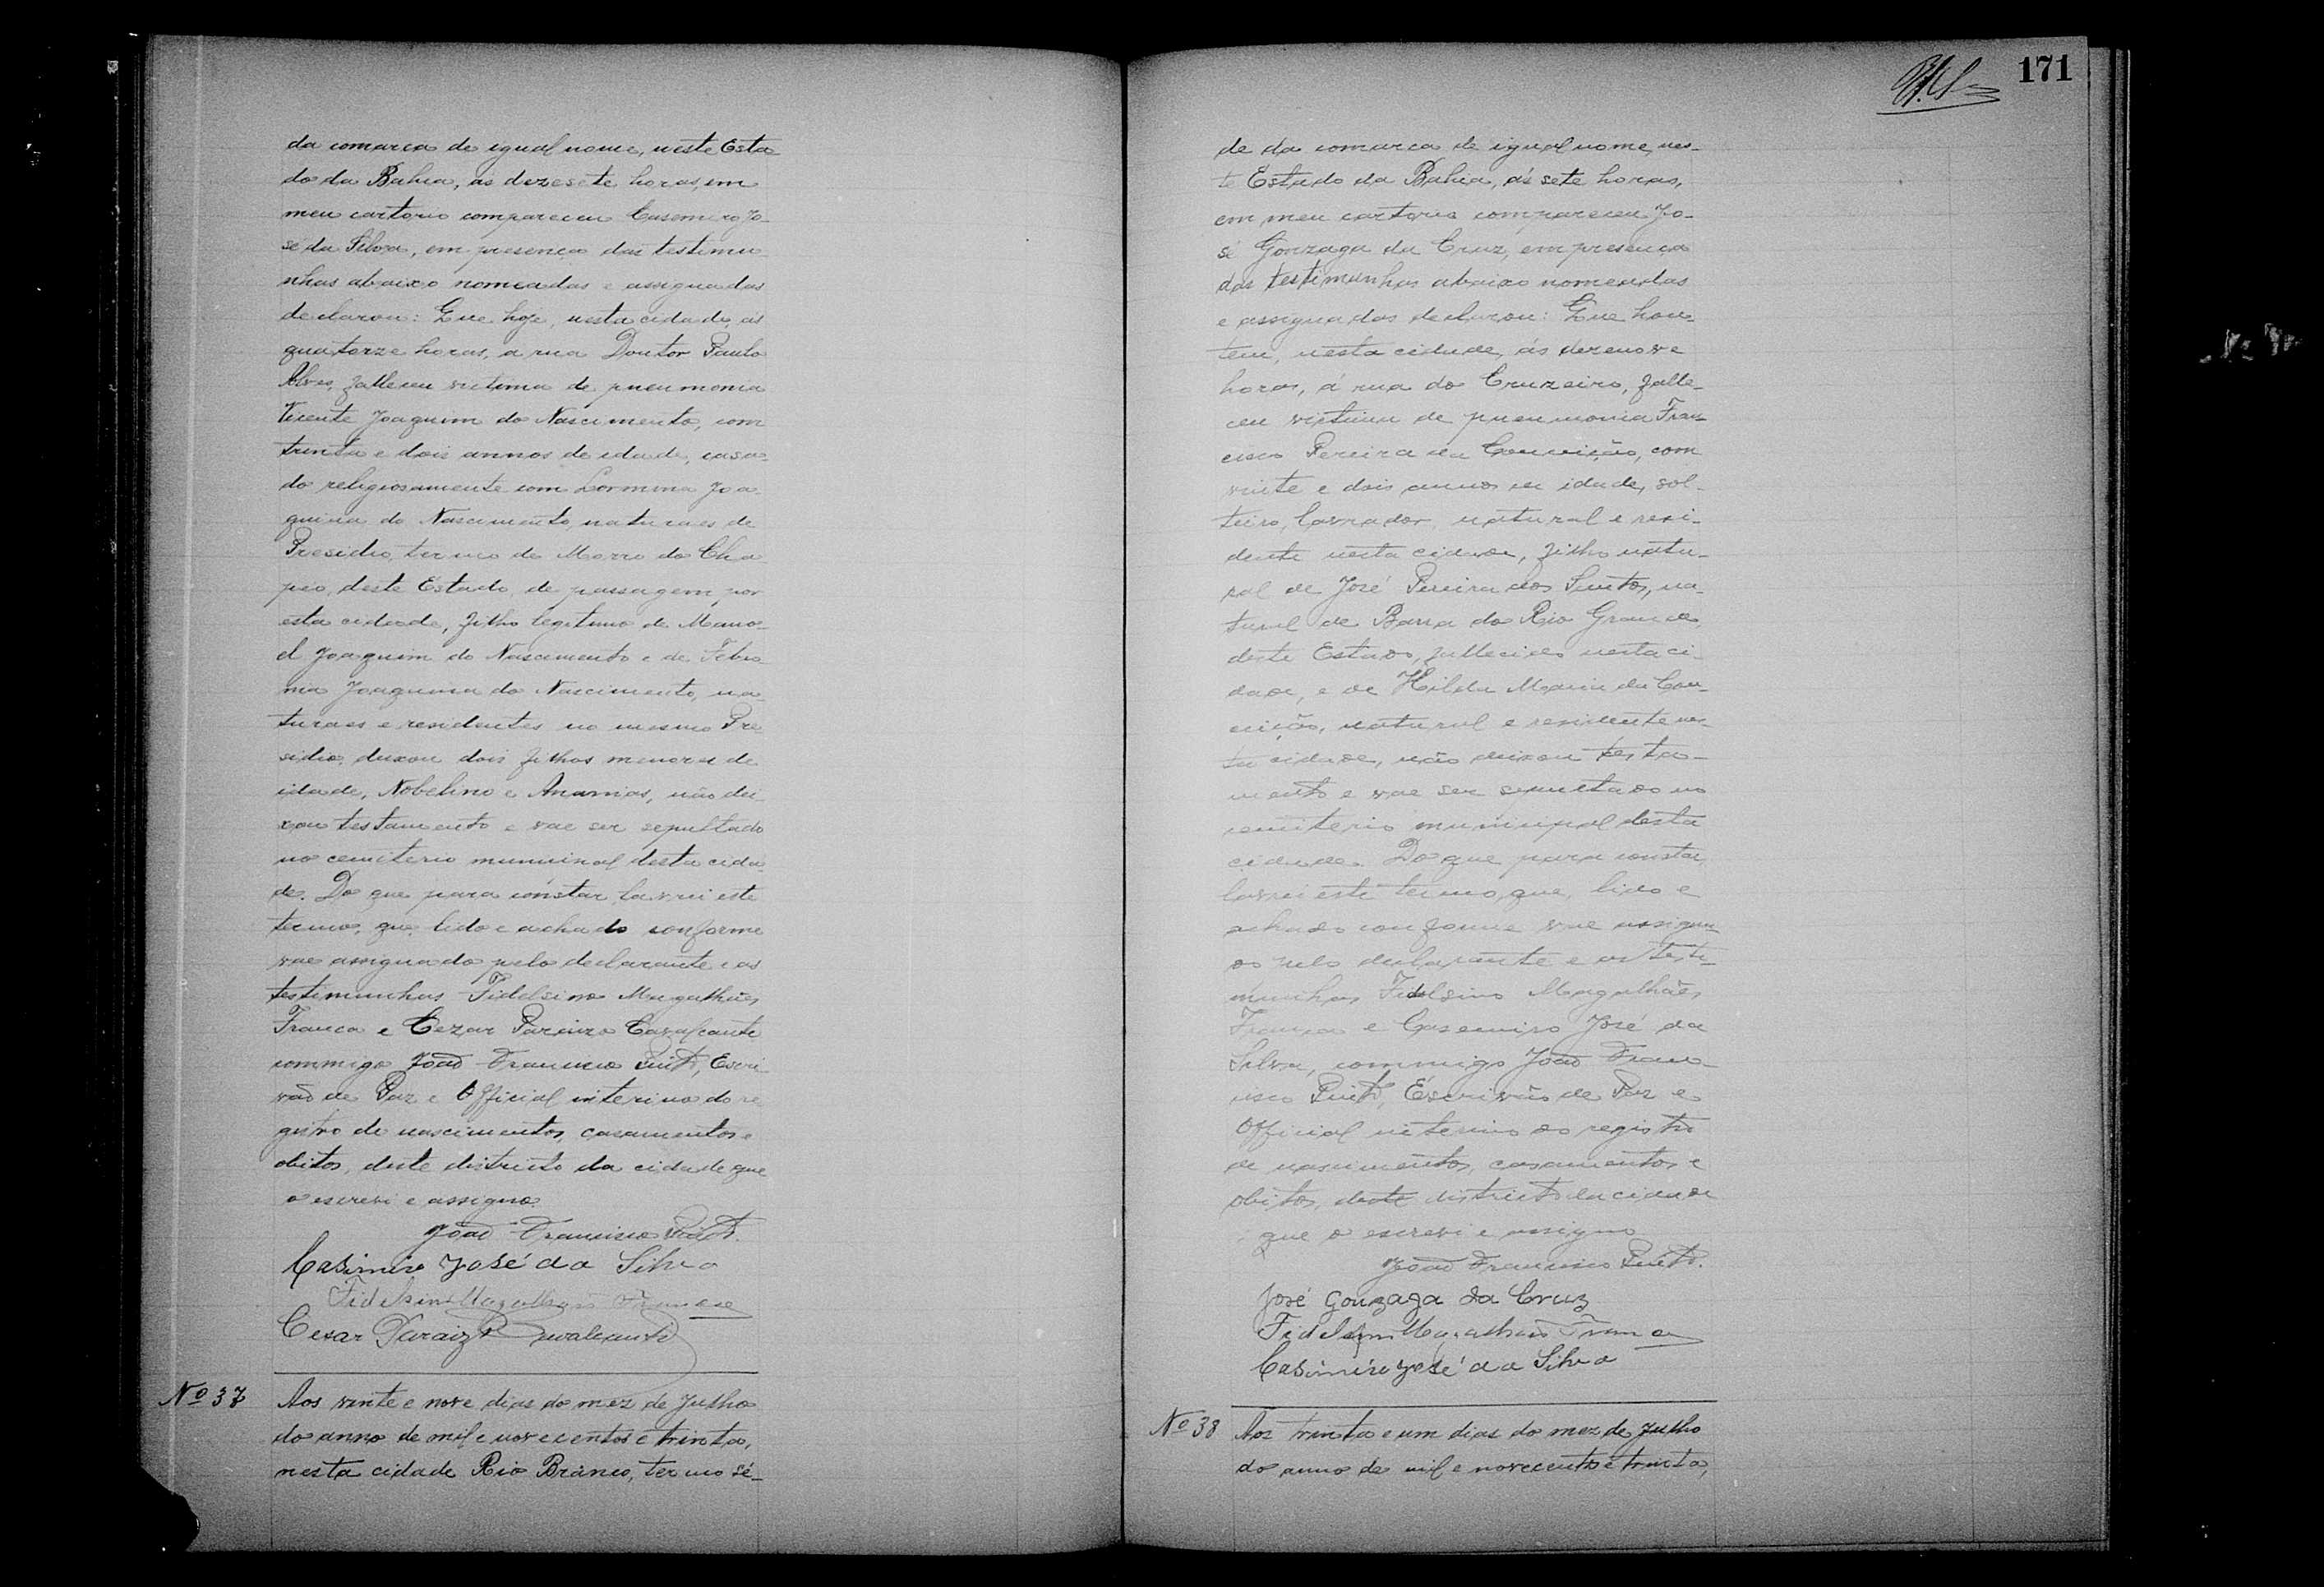 da comarca de igual nome, neste Esta
do da Bahia, ás dezesete horas, em
meu cartorio compareceu Casemiro Jo-
sé da Silva, em presença das testemu
nhas abaixo nomeadas e assignadas
declarou: Que hoje, nesta cidade, ás
quatorze horas, a rua Doutor Paulo
Alves, falleceu victima de pneumonia
Vicente Joaquim do Nascimento, com
trinta e dois annos de idade, casa-
do religiosamente com Lormina Joa-
quina do Nascimento, naturaes de
Presidio, termo de Morro do Cha
péo, deste Estado, de passagem por
esta cidade, filho legitimo de Mano-
el Joaquim do Nascimento e de
Joaquina do Nascimento, na
turaes e residentes no mesmo Pre
sidio, deixou dois filhos menores de
idade, Nobelino e Ananias, não dei
xou testamento e vae ser sepultado
no cemiterio municipal desta cida
de. Do que para constar, lavrei este
termo, que, lido e achado conforme
vae assignado pelo declarante e as
testimunhas Fidelsino Magalhães
Franca e Cezar Paraizo Cavalcante
commigo João Francisco, Escri
vão de Paz e Official interino do re
gistro de nascimentos, casamentos e
obitos, deste districto da cidade que
o escrevi e assigno.
João Francisco
Casimiro José da Silva
Fidelsino Magalhães Franca
Cesar Paraizo Cavalcanti
Nº 37 Aos vinte e nove dias do mez de Julho
do anno de mil e novecentos e trinta,
nesta cidade Rio Branco, termo sé-
171
de da comarca de igual nome, nes-
te Estado da Bahia, ás sete horas,
em meu cartorio compareceu Jo-
sé Gonzaga da Cruz, em presença
das testimunhas abaixo nomeadas
e assignadas declarou: Que hon-
tem, nesta cidade, ás dezenove
horas, á rua do Cruzeiro, falle-
ceu victima de pneumonia Fran-
cisco Pereira da Conceição, com
vinte e dois annos de idade, sol-
teiro, lavrador, natural e resi-
dente nesta cidade, filho natu-
ral de José Pereira dos Santos, na-
tural de Barra do Rio Grande,
deste Estado, fallecido nesta ci-
dade, e de Hilda Maria da Con-
ceição, natural e residente nes-
ta cidade, não deixou testa-
mento e vae ser sepultado no
cemiterio municipal desta
cidade. Do que para constar,
lavrei este termo, que, lido e
achado conforme vae assigna-
do pelo declarante e as testi-
munhas Fidelsino Magalhães
Franca e Casemiro José da
Silva, commigo João Fran-
cisco, Escrivão de Paz e
Official interino do registro
de nascimentos, casamentos e
obitos, deste districto da cidade
que o escrevi e assigno
João Francisco
José Gonzaga da Cruz
Fidelsino Magalhães Franca
Casimiro José da Silva
Nº 38 Aos trinta e um dias do mez de Julho
do anno de mil e novecentos e trinta,